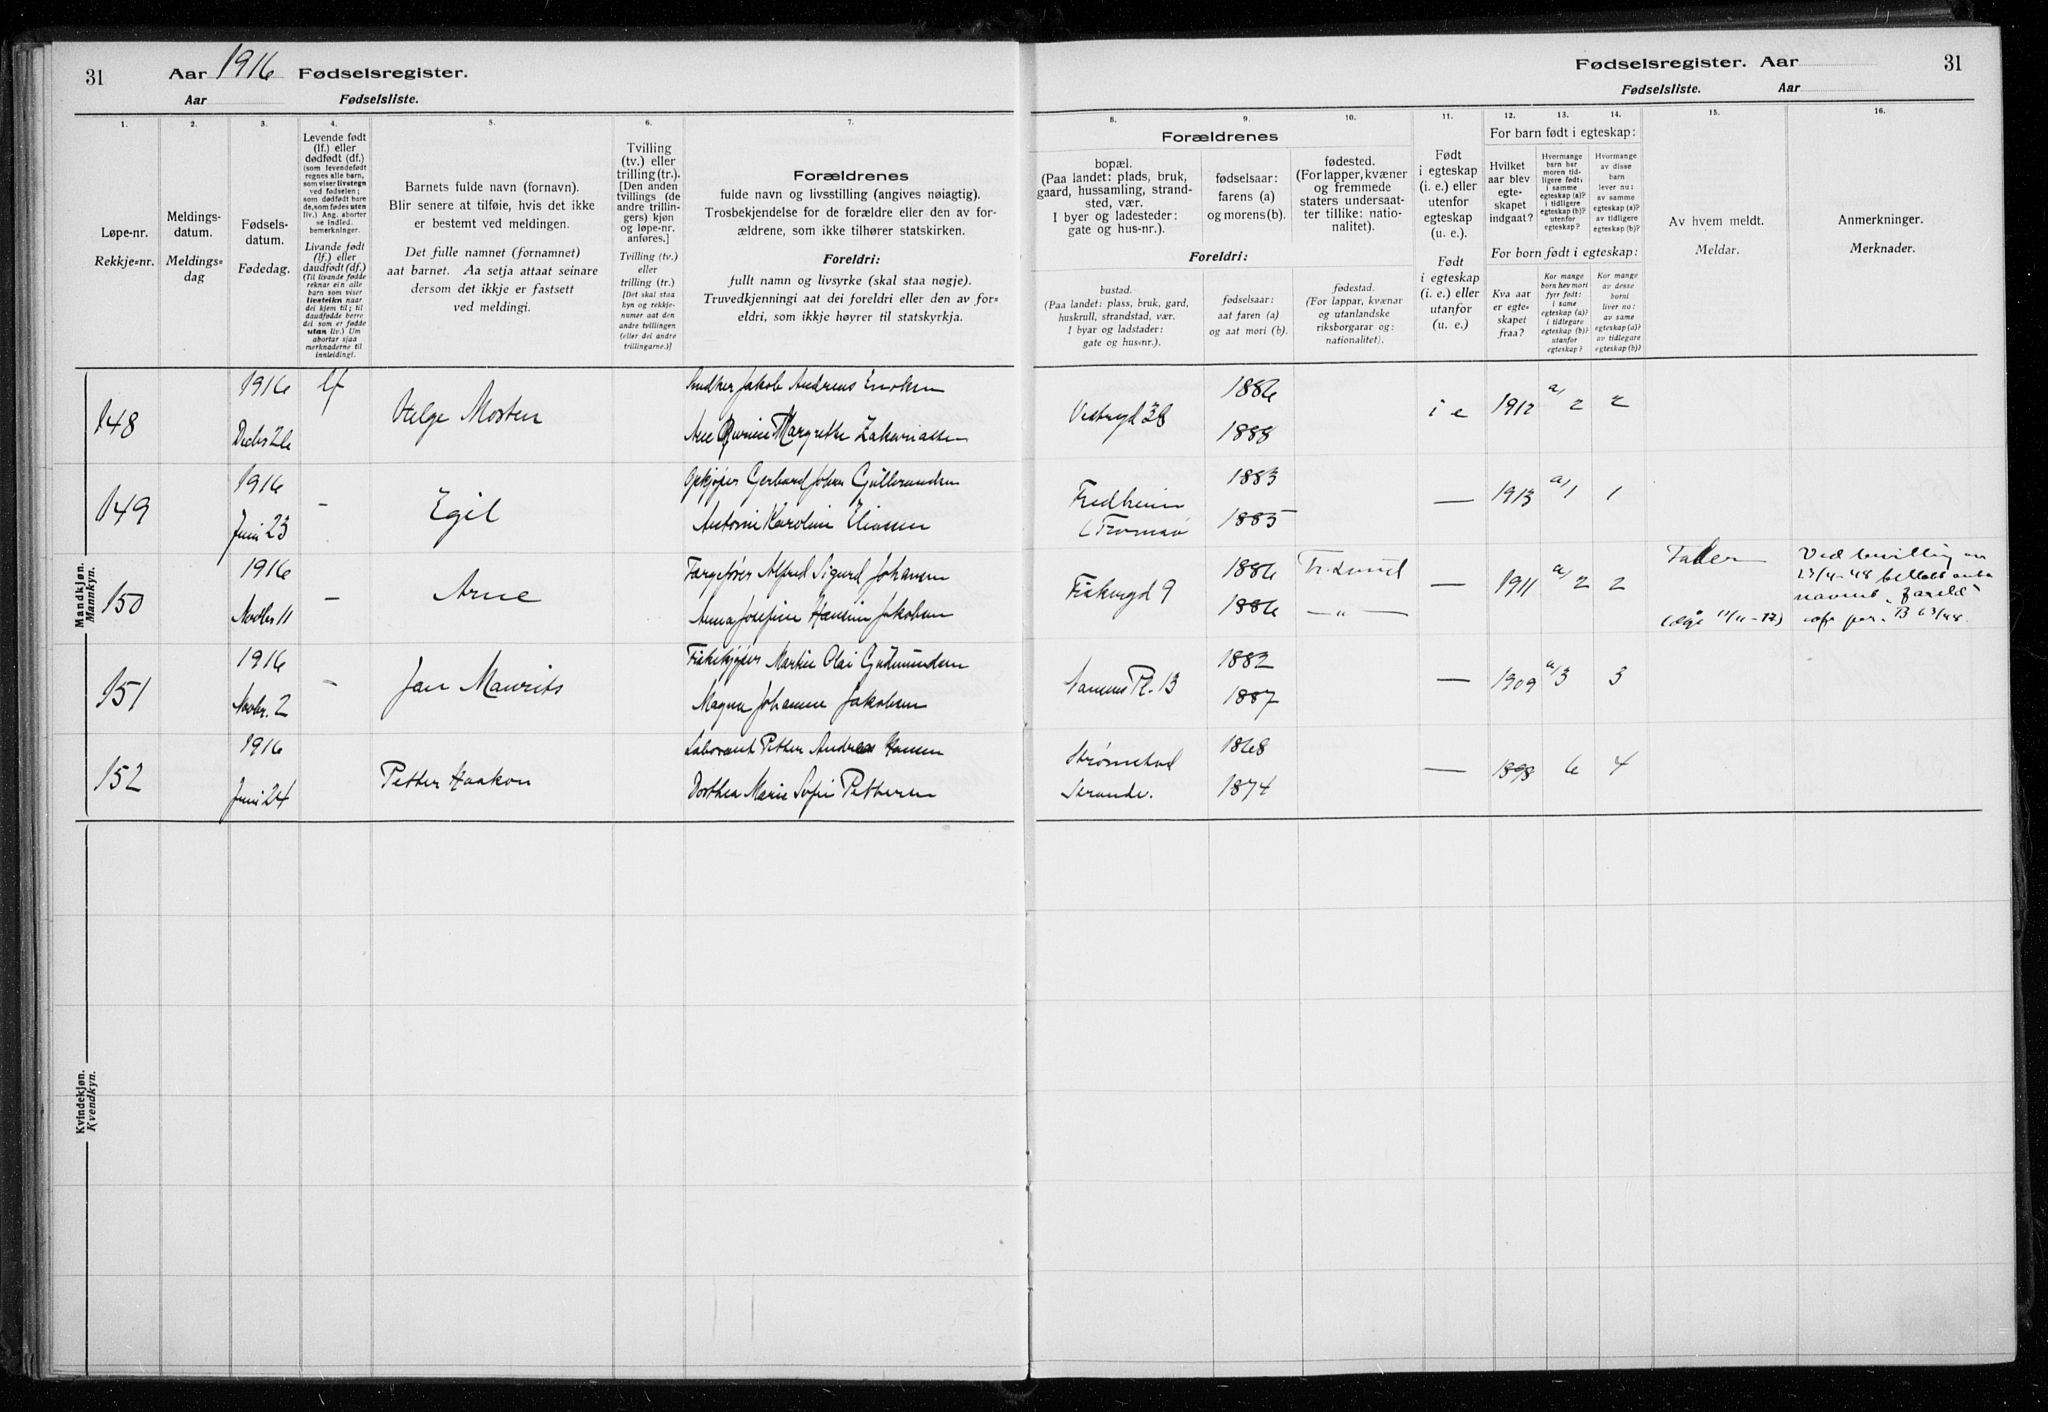 31
Aar 1916 Fødselsregister.
Aar Fødselsliste.
Fødselsregister. Aar
31
Fødselsliste. Aar
1.
Løpe-nr.
Rekkje-nr.
2.
Meldings-
datum.
Meldings-
dag
3.
Fødsels-
datum.
Fødedag.
4.
Levende født
(lf.) eller
dødfødt (df.)
(som levendefødt
regnes alle barn,
som viser livstegn
ved fødselen;
som dødfødt bare
de, som fødes uten
liv.) Ang. aborter
se indled.
bemerkninger.
Livande født
(lf.) eller
daudfødt (df.)
(Til livande fødde
reknar ein alle
barn som viser
livsteikn naar
dei kjem til; til
daudfødde berre
dei som er fødde
utan liv.) Um
abortar sjaa
merknaderne til
innleidingi.
5.
Barnets fulde navn (fornavn).
Blir senere at tilføie, hvis det ikke
er bestemt ved meldingen.
Det fulle namnet (fornamnet)
aat barnet. Aa setja attaat seinare
dersom det ikkje er fastsett
ved meldingi.
6.
Tvilling
(tv.) eller
trilling (tr.).
[Den anden
tvillings (de
andre trillin-
gers) kjøn
og løpe-nr.
anføres.]
Tvilling (tv.)
eller
trilling (tr.)
[Det skal staa
kyn og rekkje-
numer aat den
andre tvillingen
(eller dei andre
trillingarne.)]
7.
Forældrenes
fulde navn og livsstilling (angives nøiagtig).
Trosbekjendelse for de forældre eller den av for-
ældrene, som ikke tilhører statskirken.
Foreldri:
fullt namn og livsyrke (skal staa nøgje).
Truvedkjenningi aat dei foreldri eller den av for-
eldri, som ikkje høyrer til statskyrkja.
8.
Forældrenes
bopæl.
(Paa landet: plads, bruk,
gaard, hussamling, strand-
sted, vær.
I byer og ladesteder:
gate og hus-nr.).
Foreldri:
bustad.
(Paa landet: plass, bruk, gard,
huskrull, strandstad, vær.
I byar og ladstader:
gate og hus-nr.).
9.
fødselsaar:
farens (a)
og morens (b).
fødselsaar:
aat faren (a)
og aat mori (b).
10.
fødested.
(For lapper, kvæner
og fremmede
staters undersaat-
ter tillike: natio-
nalitet).
fødestad.
(For lappar, kvænar
og utanlandske
riksborgarar og:
nationalitet).
11.
Født
i egteskap
(i. e.) eller
utenfor
egteskap
(u. e.).
Født
i egteskap
(i. e.) eller
utanfor
(u. e.).
12. 13. 14.
For barn født i egteskap:
Hvilket
aar blev
egte-
skapet
indgaat?
Hvormange
barn har
moren tid-
ligere født:
i samme
egteskap (a)?
i tidligere
egteskap (b)?
utenfor
egteskap?
Hvormange
av disse
barn
lever nu:
av samme
egteskap (a)?
av tidligere
egteskap (b)?
For born født i egteskap:
Kva aar
er egte-
skapet
fraa?
Kor mange
born hev mori
fyrr født:
i same
egteskap (a)?
i tidlegare
egteskap (b)?
utanfor
egteskap?
Kor mange
av desse
borni
liver no:
av same
egteskap (a)?
av tidlegare
egteskap (b)?
15.
Av hvem meldt.
Meldar.
16.
Anmerkninger.
Merknader.
Mandkjøn.
Mannkyn.
148
1916
Decbr 26
lf
Helge Morten
Jakob Andreas Enoksen
Margrethe Zakariassen
38
1886
1888
i e
1912
a/2
2
149
1916
Juni 23
-
Egil
Opkjøper Gerhard Johan Gulbrandsen
Antonie Karoline Eliassen
Fredheim
(Tromsø
1883
1885
—
1913
a/1
1
150
1916
Novbr 11
-
Arne
Alfred Sigurd Johansen
Anna Josefine Hansine Jakobsen
9
1886
1886
—"—
—
1911
a/2
2
Fader
Ved bevilling av
23/4-48
B 63/48.
151
1916
Novbr. 2
-
Jan Maurits
Fiskekjøper Martin Olai Gudmundsen
Magna Johanne Jakobsen
Nansens Pl. 13
1882
1887
—
1909
a/3
3
152
1916
Juni 24
Petter Haakon
Laborant Petter Andreas Hansen
Dorthea Marie Sofie Pettersen
1868
1874
—
1898
6
4
Kvindekjøn.
Kvendkyn.